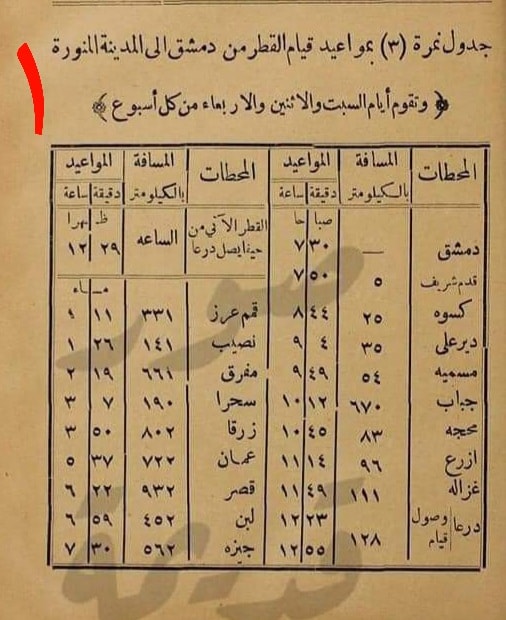 جدول نمرة (٣) بمواعيد قيام القطر من دمشق الى المدينة المنورة
١
﴿ وتقوم أيام السبت والاثنين والاربعاء من كل أسبوع ﴾
المحطات المسافة المواعيد
بالكيلومتر دقيقة ساعة
صباحا
دمشق — ٣٠ ٧
قدم شريف ٥ ٥٠ ٧
كسوه ٢٥ ٤٤ ٨
ديرعلى ٣٥ ٤ ٩
مسميه ٥٤ ٤٩ ٩
جباب ٦٧٠ ١٢ ١٠
محجه ٨٣ ٤٥ ١٠
ازرع ٩٦ ١٤ ١١
غزاله ١١١ ٤٩ ١١
درعا وصول ٢٣ ١٢
قيام ١٢٨ ٥٥ ١٢
المحطات المسافة المواعيد
بالكيلومتر دقيقة ساعة
ظهرا
القطر الآتي من الساعه ٢٩ ١٢
حينا يصل درعا
مساء
قم غرز ٣٣١ ١١ ٩
نصيب ١٤١ ٢٦ ١
مفرق ٦٦١ ١٩ ٢
سحرا ١٩٠ ٧ ٣
زرقا ٨٠٢ ٥٠ ٣
عمان ٧٢٢ ٣٧ ٥
قصر ٩٣٢ ٢٢ ٦
لبن ٤٥٢ ٥٩ ٦
جيزه ٥٦٢ ٣٠ ٧
صور
قديمة